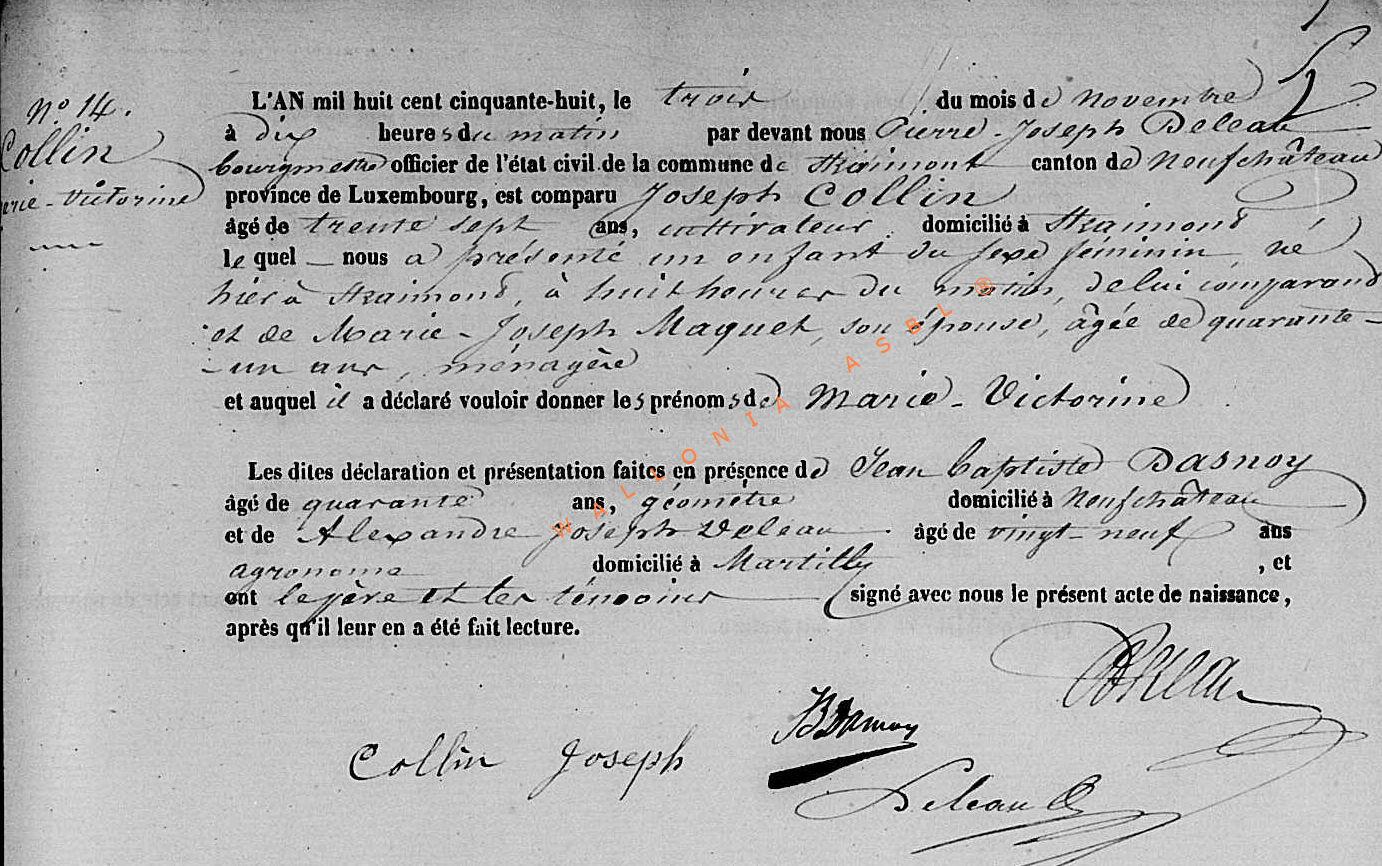 N.º 14.
Collin
Victorine
L'AN mil huit cent cinquante-huit, le trois du mois de novembre
à dix heures du matin par devant nous Pierre-Joseph Deleau
bourgmestre officier de l'état civil de la commune de Straimont canton de Neufchâteau
province de Luxembourg, est comparu Joseph Collin
âgé de trente sept ans, cultivateur domicilié à Straimont
lequel nous a présenté un enfant du sexe féminin, né
hier à Straimond, à huit heures du matin, de lui comparand
et de Marie-Joseph Maquet, son épouse, âgée de quarante-
-un ans, ménagère
et auquel il a déclaré vouloir donner les prénoms de Marie-Victorine
Les dites déclaration et présentation faites en présence de Jean Baptiste Dasnoy
âgé de quarante ans, géomètre domicilié à Neufchâteau
et de Alexandre Joseph Deleau âgé de vingt-neuf ans
agronome domicilié à Martilly, et
ont le père et les témoins signé avec nous le présent acte de naissance,
après qu'il leur en a été fait lecture.
Collin Joseph
Deleau
WALLONIA ASBL ®